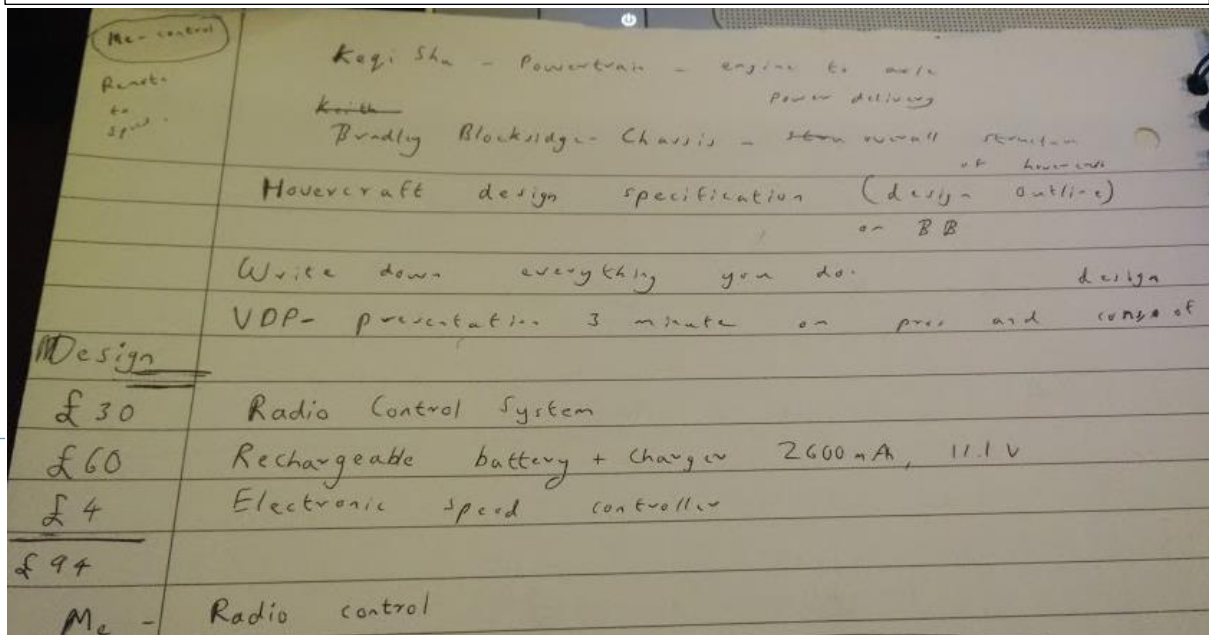 Me - control
Remote
to
speed.
Keqi Sha - Powertrain - engine to axle
power delivery
Keith
Bradley Blocksidge - Chassis - overall structure
of hovercraft
Hovercraft design specification (design outline)
on BB
Write down everything you do.
design
VDP - presentation 3 minute on pros and cons of
Design
£30 Radio Control System
£60 Rechargeable battery + Charger 2600mAh, 11.1V
£4 Electronic speed controller
£94
Me - Radio control